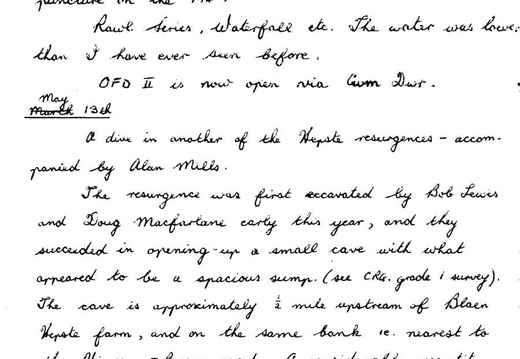 puncture on the
Rawl Series, Waterfall etc. The water was lower
than I have ever seen before.
OFD II is now open via Cwm Dwr.
May
March 13th
A dive in another of the Hepste resurgences - accom-
panied by Alan Mills.
The resurgence was first excavated by Bob Lewis
and Doug Macfarlane early this year, and they
succeeded in opening-up a small cave with what
appeared to be a spacious sump. (see CRG. grade 1 survey).
The cave is approximately ½ mile upstream of Blaen
Hepste farm, and on the same bank ie. nearest to